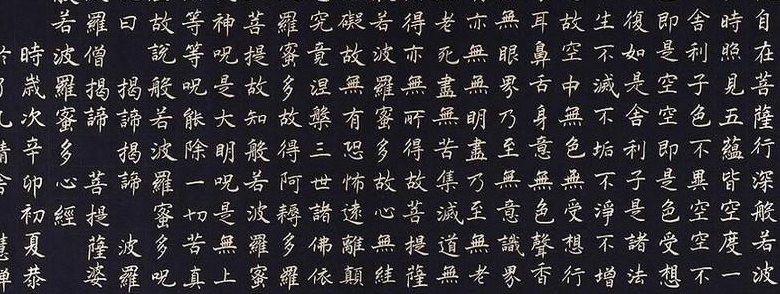 自在菩薩行深般若波
時照見五蘊皆空度一
舍利子色不異空空不
即是空空即是色受想
復如是舍利子是諸法
生不滅不垢不淨不增
故空中無色無受想行
耳鼻舌身意無色聲香
無眼界乃至無意識界
亦無無明盡乃至無老
老死盡無苦集滅道無
得亦無所得故菩提薩
若波羅蜜多故心無絓
礙故無有恐怖遠離顛
究竟涅槃三世諸佛依
羅蜜多故得阿耨多羅
菩提故知般若波羅蜜
神呪是大明呪是無上
等等呪能除一切苦真
故說般若波羅蜜多呪
曰 揭諦揭諦 波羅
羅僧揭諦 菩提薩婆
若波羅蜜多心經
時歲次辛卯初夏恭